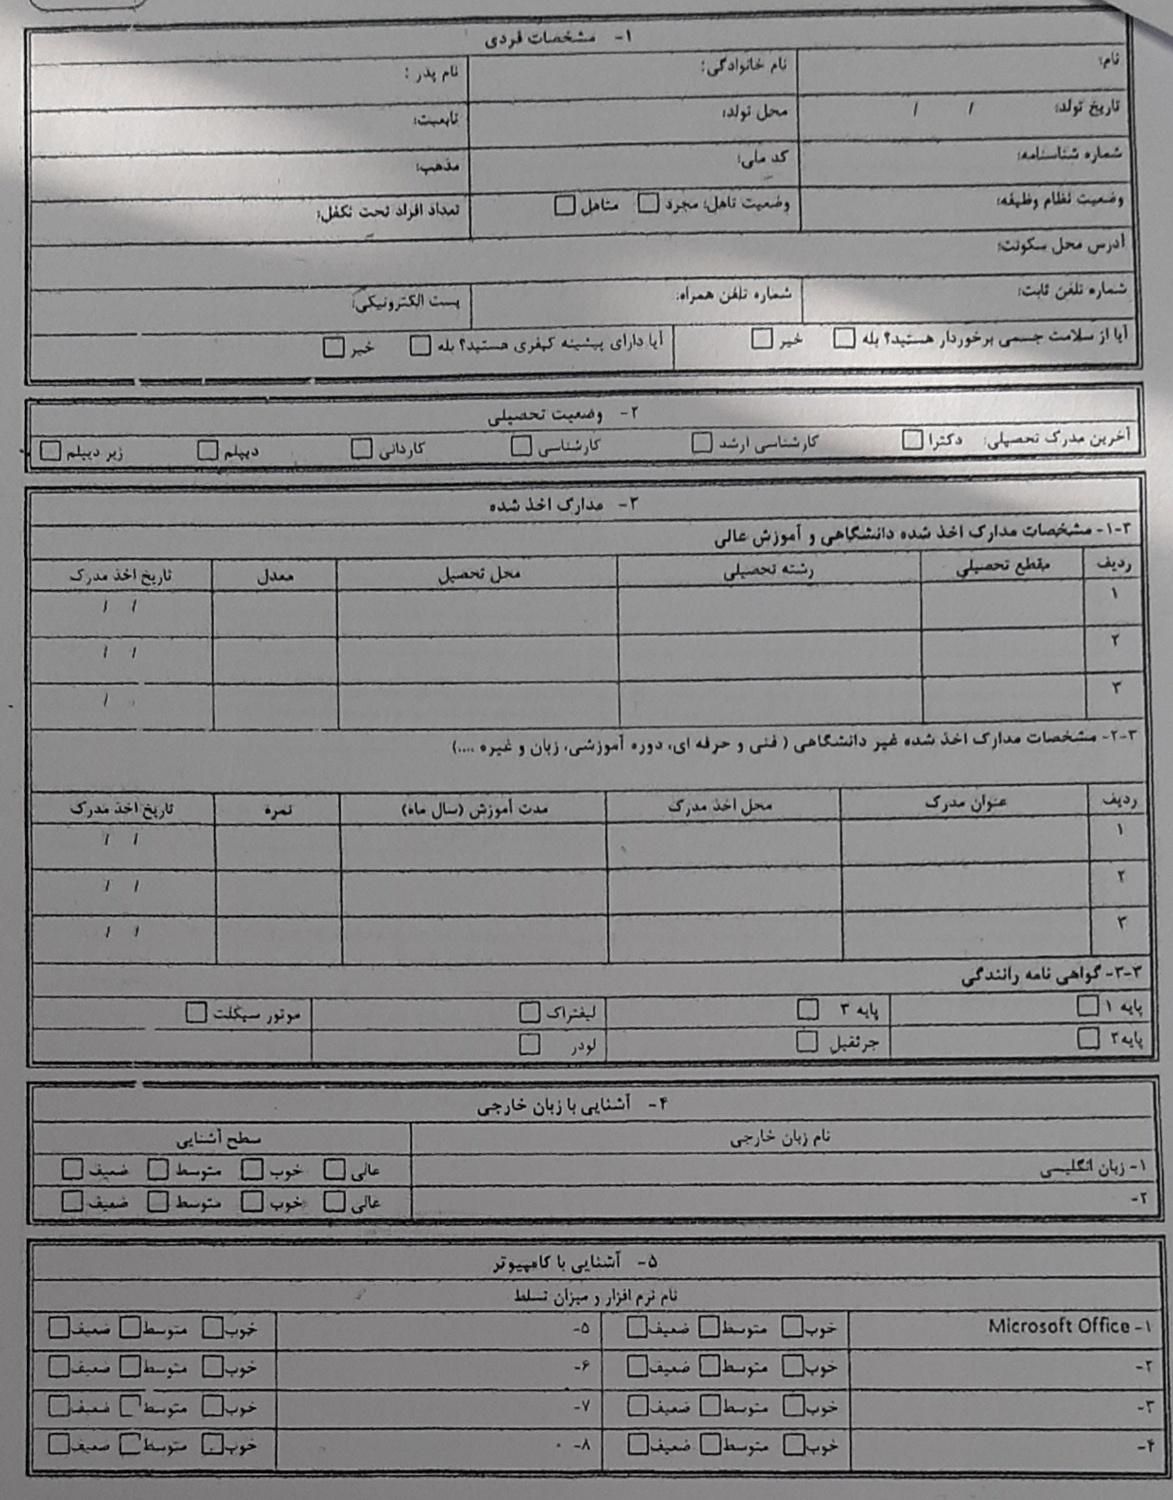 ۱- مشخصات فردی
نام: نام خانوادگی: نام پدر :
تاریخ تولد: / / محل تولد: تابعیت:
شماره شناسنامه: کد ملی: مذهب:
وضعیت نظام وظیفه: وضعیت تاهل: مجرد □ متاهل □ تعداد افراد تحت تکفل:
آدرس محل سکونت:
شماره تلفن ثابت: شماره تلفن همراه: پست الکترونیکی:
آیا از سلامت جسمی برخوردار هستید؟ بله □ خیر □ آیا دارای پیشینه کیفری هستید؟ بله □ خیر □
۲- وضعیت تحصیلی
آخرین مدرک تحصیلی: دکترا □ کارشناسی ارشد □ کارشناسی □ کاردانی □ دیپلم □ زیر دیپلم □
۳- مدارک اخذ شده
۳-۱- مشخصات مدارک اخذ شده دانشگاهی و آموزش عالی
ردیف مقطع تحصیلی رشته تحصیلی محل تحصیل معدل تاریخ اخذ مدرک
۱ / /
۲ / /
۳ /
۳-۲- مشخصات مدارک اخذ شده غیر دانشگاهی ( فنی و حرفه ای، دوره آموزشی، زبان و غیره ....)
ردیف عنوان مدرک محل اخذ مدرک مدت آموزش (سال ماه) نمره تاریخ اخذ مدرک
۱ / /
۲ / /
۳ / /
۳-۳- گواهی نامه رانندگی
پایه ۱ □ پایه ۳ □ لیفتراک □ موتور سیکلت □
پایه۲ □ جرثقیل □ لودر □
۴- آشنایی با زبان خارجی
نام زبان خارجی سطح آشنایی
۱- زبان انگلیسی عالی □ خوب □ متوسط □ ضعیف □
۲- عالی □ خوب □ متوسط □ ضعیف □
۵- آشنایی با کامپیوتر
نام نرم افزار و میزان تسلط
۱- Microsoft Office خوب □ متوسط □ ضعیف □ ۵- خوب □ متوسط □ ضعیف □
۲- خوب □ متوسط □ ضعیف □ ۶- خوب □ متوسط □ ضعیف □
۳- خوب □ متوسط □ ضعیف □ ۷- خوب □ متوسط □ ضعیف □
۴- خوب □ متوسط □ ضعیف □ ۸- خوب □ متوسط □ ضعیف □